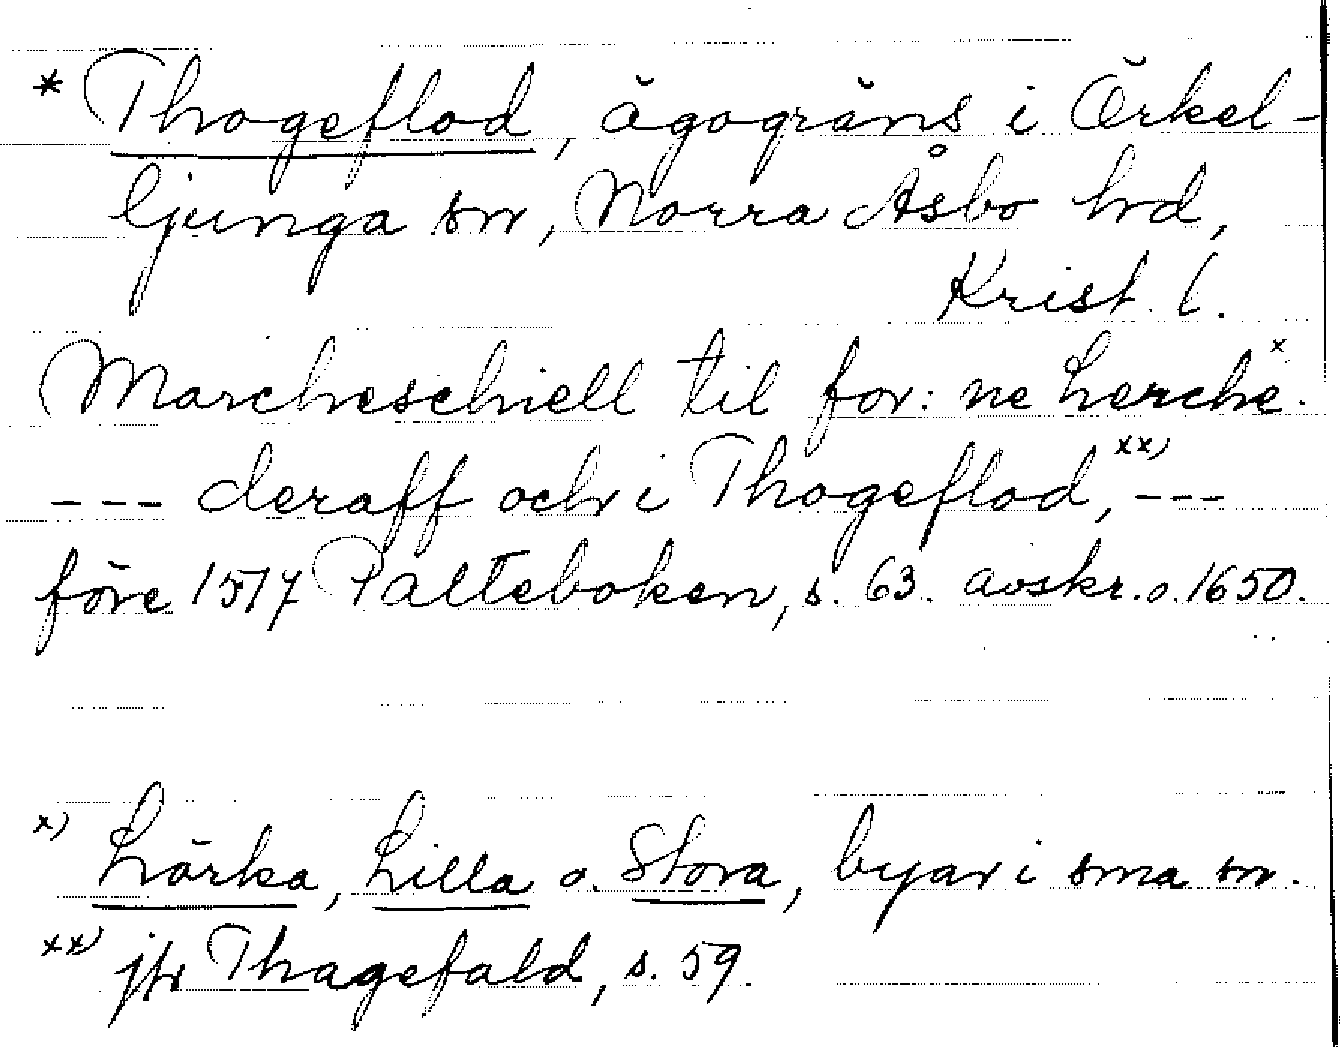 * Thogeflod, ägogräns i Örkel-
ljunga sn, Norra Åsbo hd,
Krist. l.
Marcheschiell til for: ne Lerche x.
--- deraff och i Thogeflod, xx) ---
före 1517 Palteboken, s. 63. avskr. o. 1650.
x) Lärka, Lilla o. Stora, byar i sma sn.
xx) jfr Thagefald, s. 59.